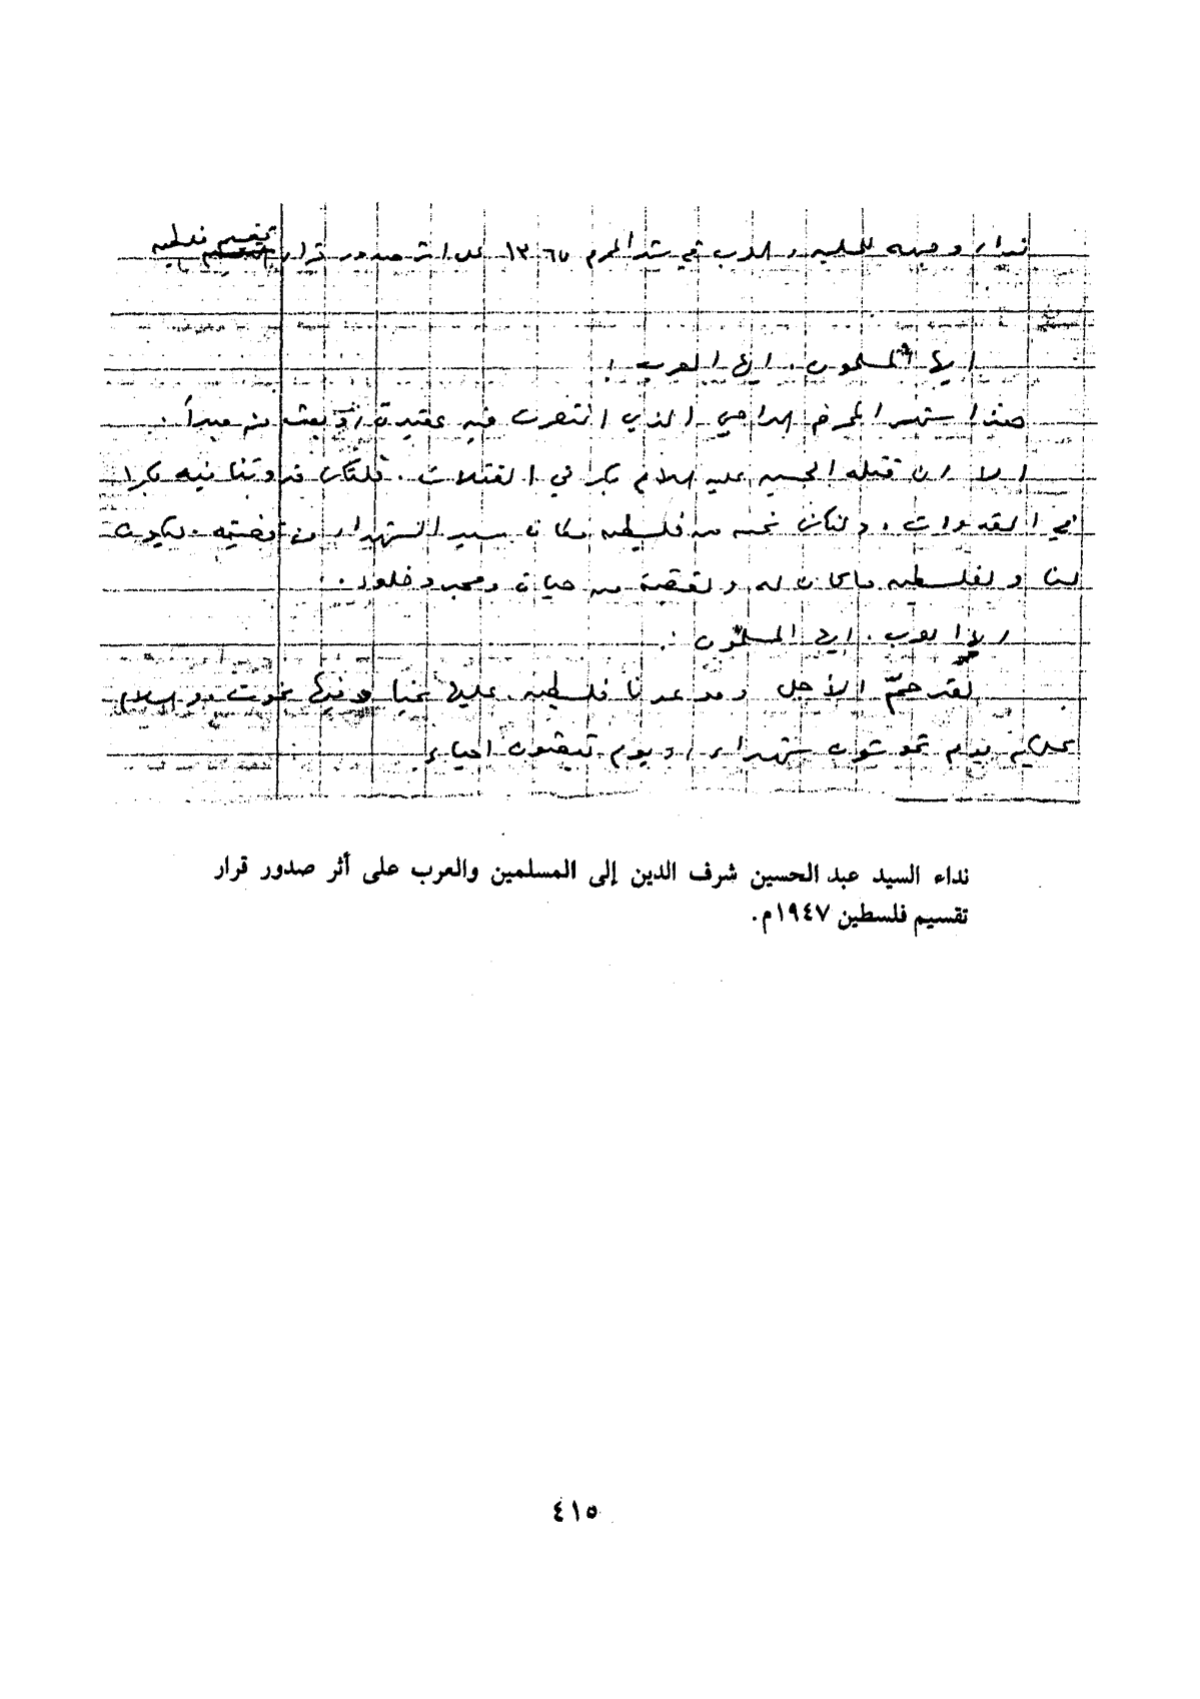 نداء وجهه للمسلمين والعرب في شهر المحرم ١٣٦٥ على اثر صدور قرار تقسيم فلسطين
ايها المسلمون، ايها العرب:
هذا شهر المحرم الدامي الذي انتصرت فيه عقيدة، وبعث فيه مبدأ.
الا وان قتلة الحسين عليه السلام بكر في القتلات. فلتكن قدوتنا فيه بكرا
في القدوات. ولنكن نحن من فلسطين مكان سيد الشهداء من قضيته. ليكون
لنا ولفلسطين ما كان له ولقضيته من حياة ومجد وخلود.
ايها العرب. ايها المسلمون:
لقد حمّ الأجل وموعدنا فلسطين. عليها نحيا وفيها نموت والسلام
عليكم يوم تموتون شهداء، ويوم تبعثون احياء
نداء السيد عبد الحسين شرف الدين إلى المسلمين والعرب على أثر صدور قرار
تقسيم فلسطين ١٩٤٧م.
٤١٥